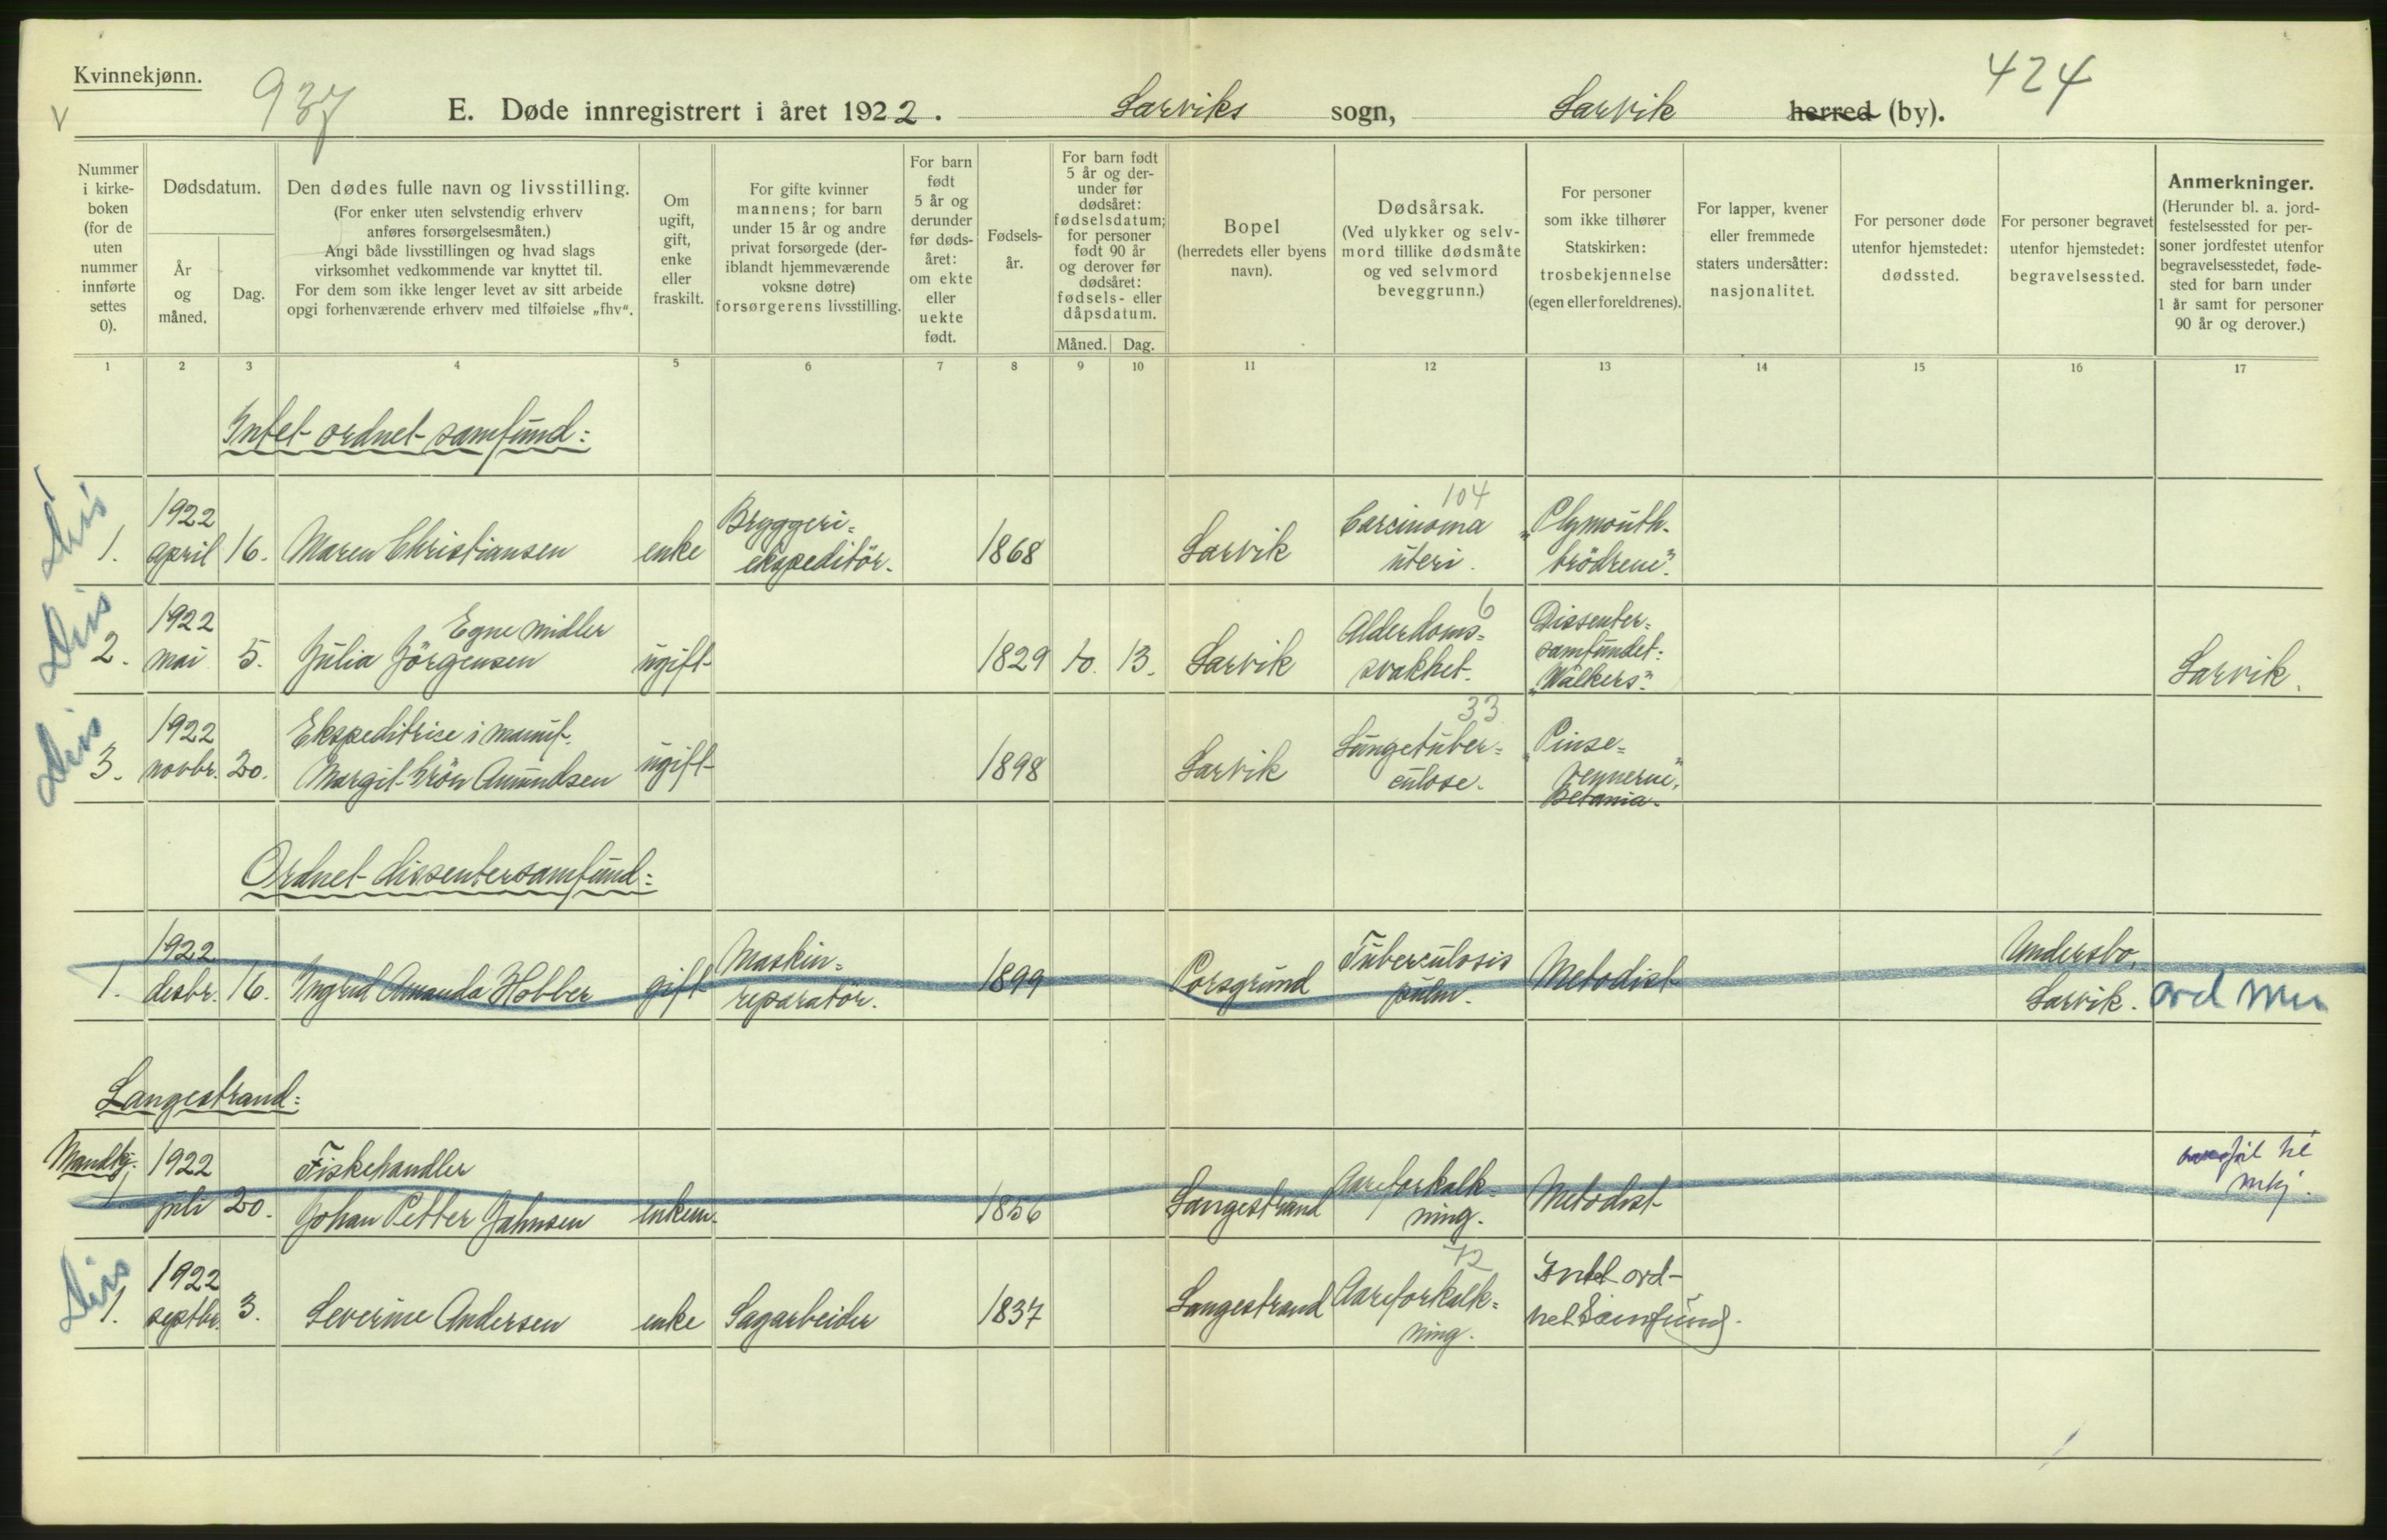 Kvinnekjønn.
V
937
424
E. Døde innregistrert i året 1922. Larviks sogn, Larvik herred (by).
Nummer i kirke- boken (for de uten nummer innførte settes 0).
Dødsdatum.
År og måned.
Dag.
Den dødes fulle navn og livsstilling.
(For enker uten selvstendig erhverv
anføres forsørgelsesmåten.)
Angi både livsstillingen og hvad slags
virksomhet vedkommende var knyttet til.
For dem som ikke lenger levet av sitt arbeide
opgi forhenværende erhverv med tilføielse „fhv".
Om ugift, gift, enke eller fraskilt.
For gifte kvinner
mannens; for barn
under 15 år og andre
privat forsørgede (der-
iblandt hjemmeværende
voksne døtre)
forsørgerens livsstilling.
For barn født 5 år og derunder før døds- året: om ekte eller uekte født.
Fødsels- år.
For barn født
5 år og der-
under før
dødsåret:
fødselsdatum;
for personer
født 90 år
og derover før
dødsåret:
fødsels- eller
dåpsdatum.
Måned. Dag.
Bopel
(herredets eller byens
navn).
Dødsårsak.
(Ved ulykker og selv-
mord tillike dødsmåte
og ved selvmord
beveggrunn.)
For personer
som ikke tilhører
Statskirken:
trosbekjennelse
(egen eller foreldrenes).
For lapper, kvener
eller fremmede
staters undersåtter:
nasjonalitet.
For personer døde
utenfor hjemstedet:
dødssted.
For personer begravet
utenfor hjemstedet:
begravelsessted.
Anmerkninger.
(Herunder bl. a. jord-
festelsessted for per-
soner jordfestet utenfor
begravelsesstedet, føde-
sted for barn under
1 år samt for personer
90 år og derover.)
1 2 3 4 5 6 7 8 9 10 11 12 13 14 15 16 17
Intet ordnet samfund:
Dis 1. 1922 april 16. Maren Christiansen enke Bryggeri= ekspeditör. 1868 Larvik 104 Carcinoma uteri. „Plymouth- brödrene".
Dis 2. 1922 mai 5. Egne midler Julia Jörgensen ugift 1829 10. 13. Larvik 6 Alderdoms= svakhet. Dissenter= samfundet: „Walkers". Larvik.
Dis 3. 1922 novbr. 20. Ekspeditrise i manuf. Margit Grön Amundsen ugift 1898 Larvik 33 Lungetuber= culose. „Pinse= vennerne," Betania.
Ordnet dissentersamfund:
1. 1922 desbr. 16. Ingrid Amanda Hobber gift Maskin= reparatör. 1899 Porsgrund Tuberculosis pulm. Metodist Undersbo, Larvik. ord mu
Langestrand:
Mandkj. 1922 juli 20. Fiskehandler Johan Petter Jahnsen enkem. 1856 Langestrand Aareforkalk- ning. Metodist til mkj.
Dis 1. 1922 septbr. 3. Severine Andersen enke Sagarbeider 1837 Langestrand 72 Aareforkalk= ning. Intet ord- net Samfund.